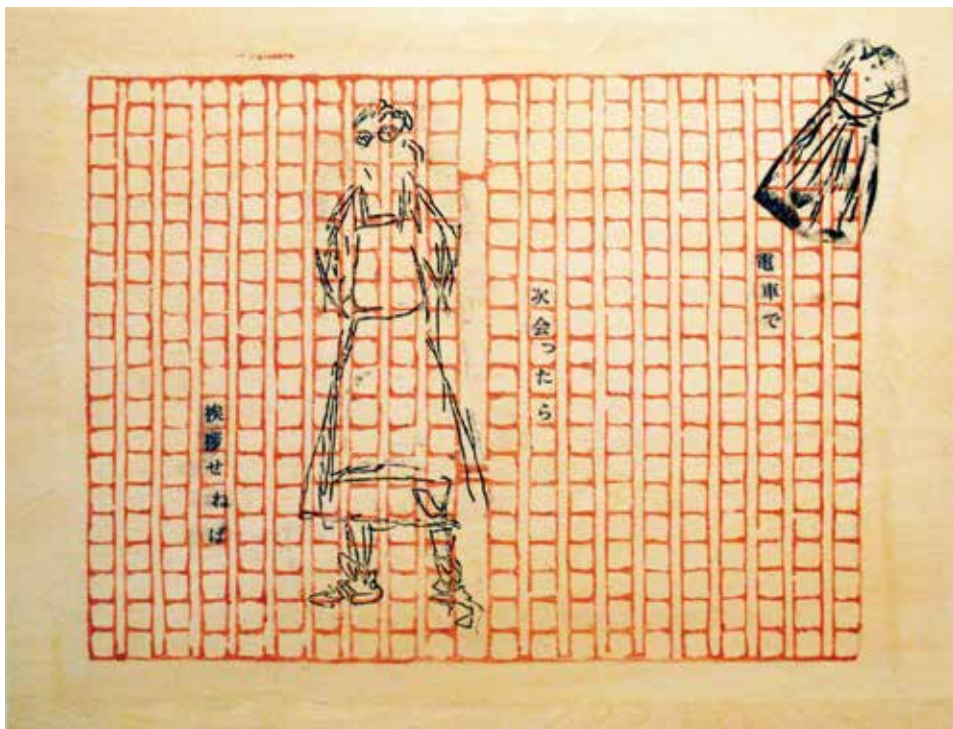 電車で
次会ったら
挨拶せねば